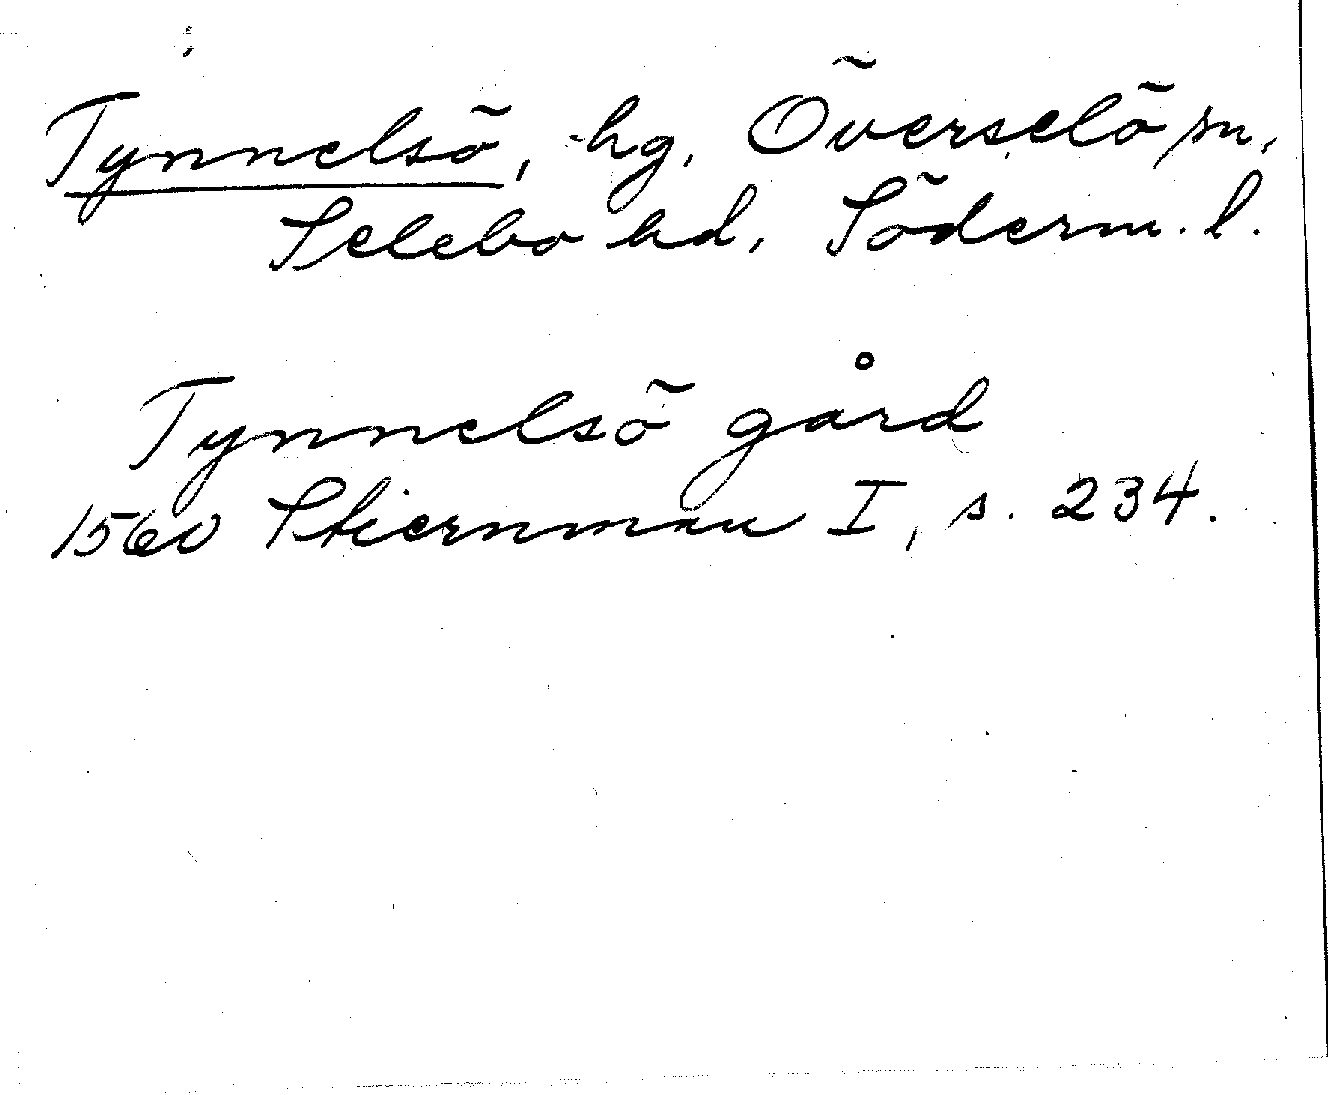 Tynnelsö, hg, Överselö sn,
Selebo hd, Söderm. l.
Tynnelsö gård
1560 Stiernman I, s. 234.